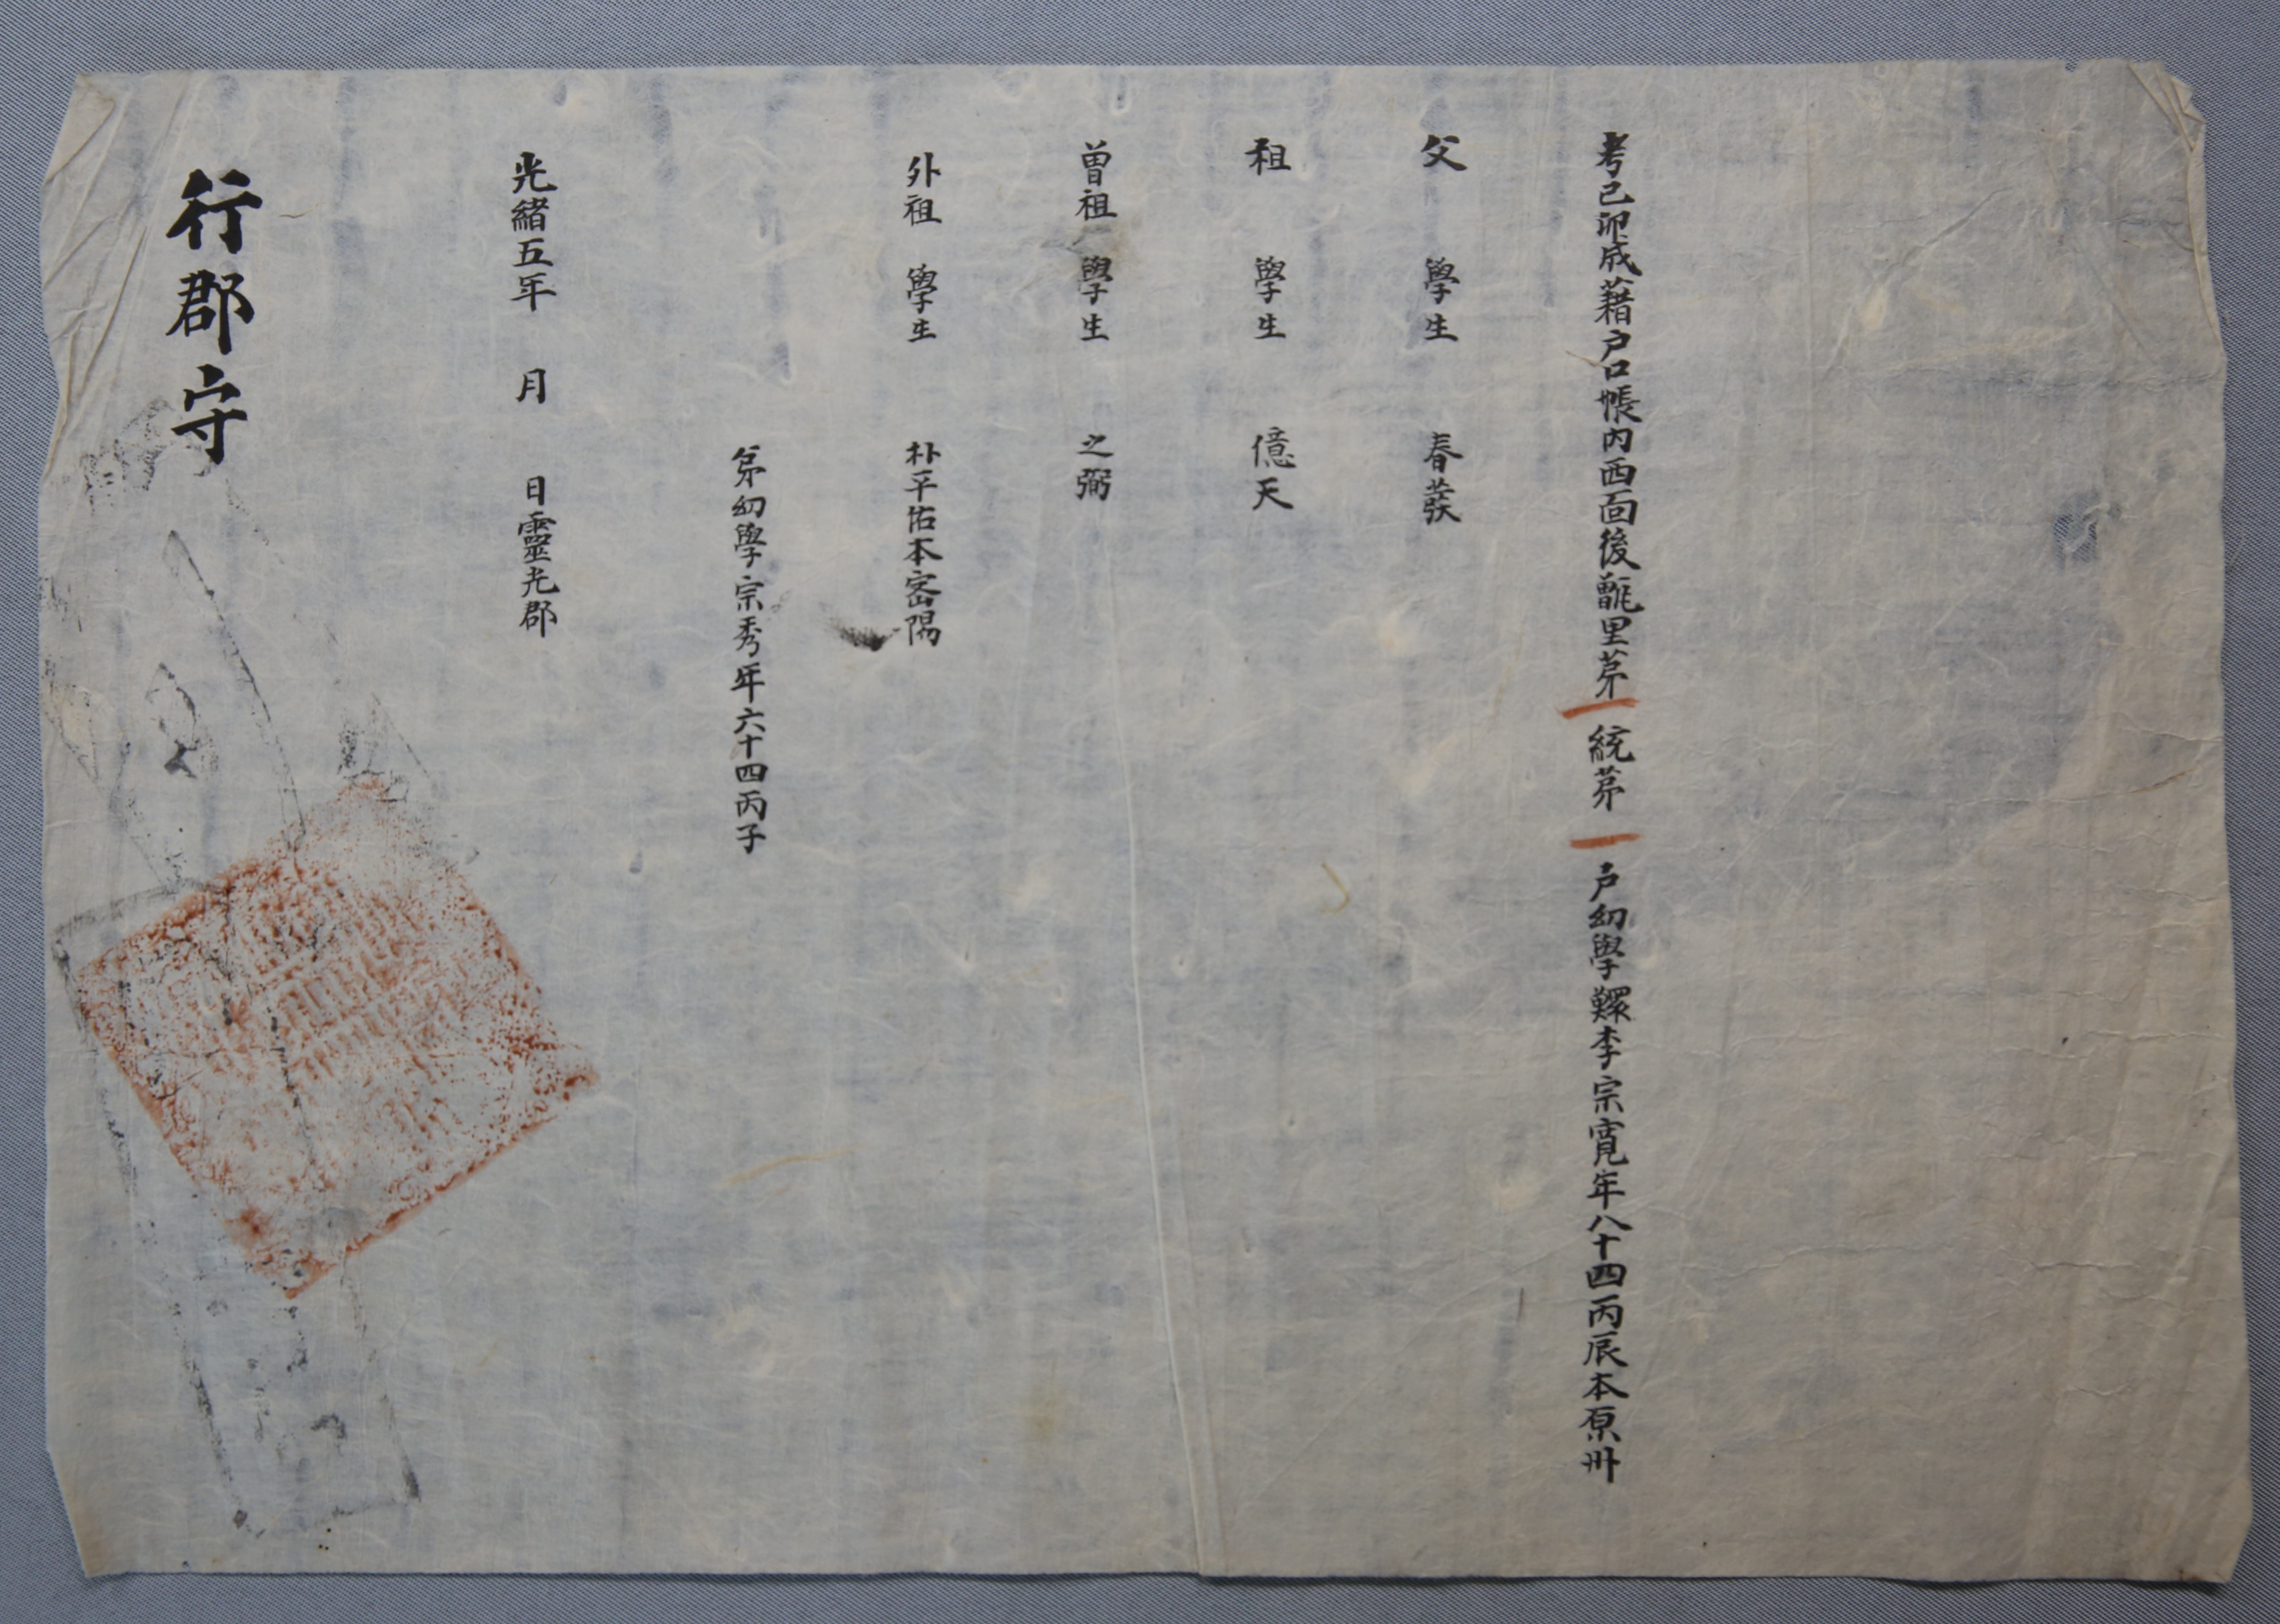 考己卯成籍戶口帳內西面後甑里苐一統苐一戶幼學鰥李宗寬年八十四丙辰本原州
父 學生 春發
祖 學生 億天
曾祖 學生 之弼
外祖 學生 朴平佑本密陽
弟幼學宗秀年六十四丙子
光緒五年 月 日靈光郡
行郡守